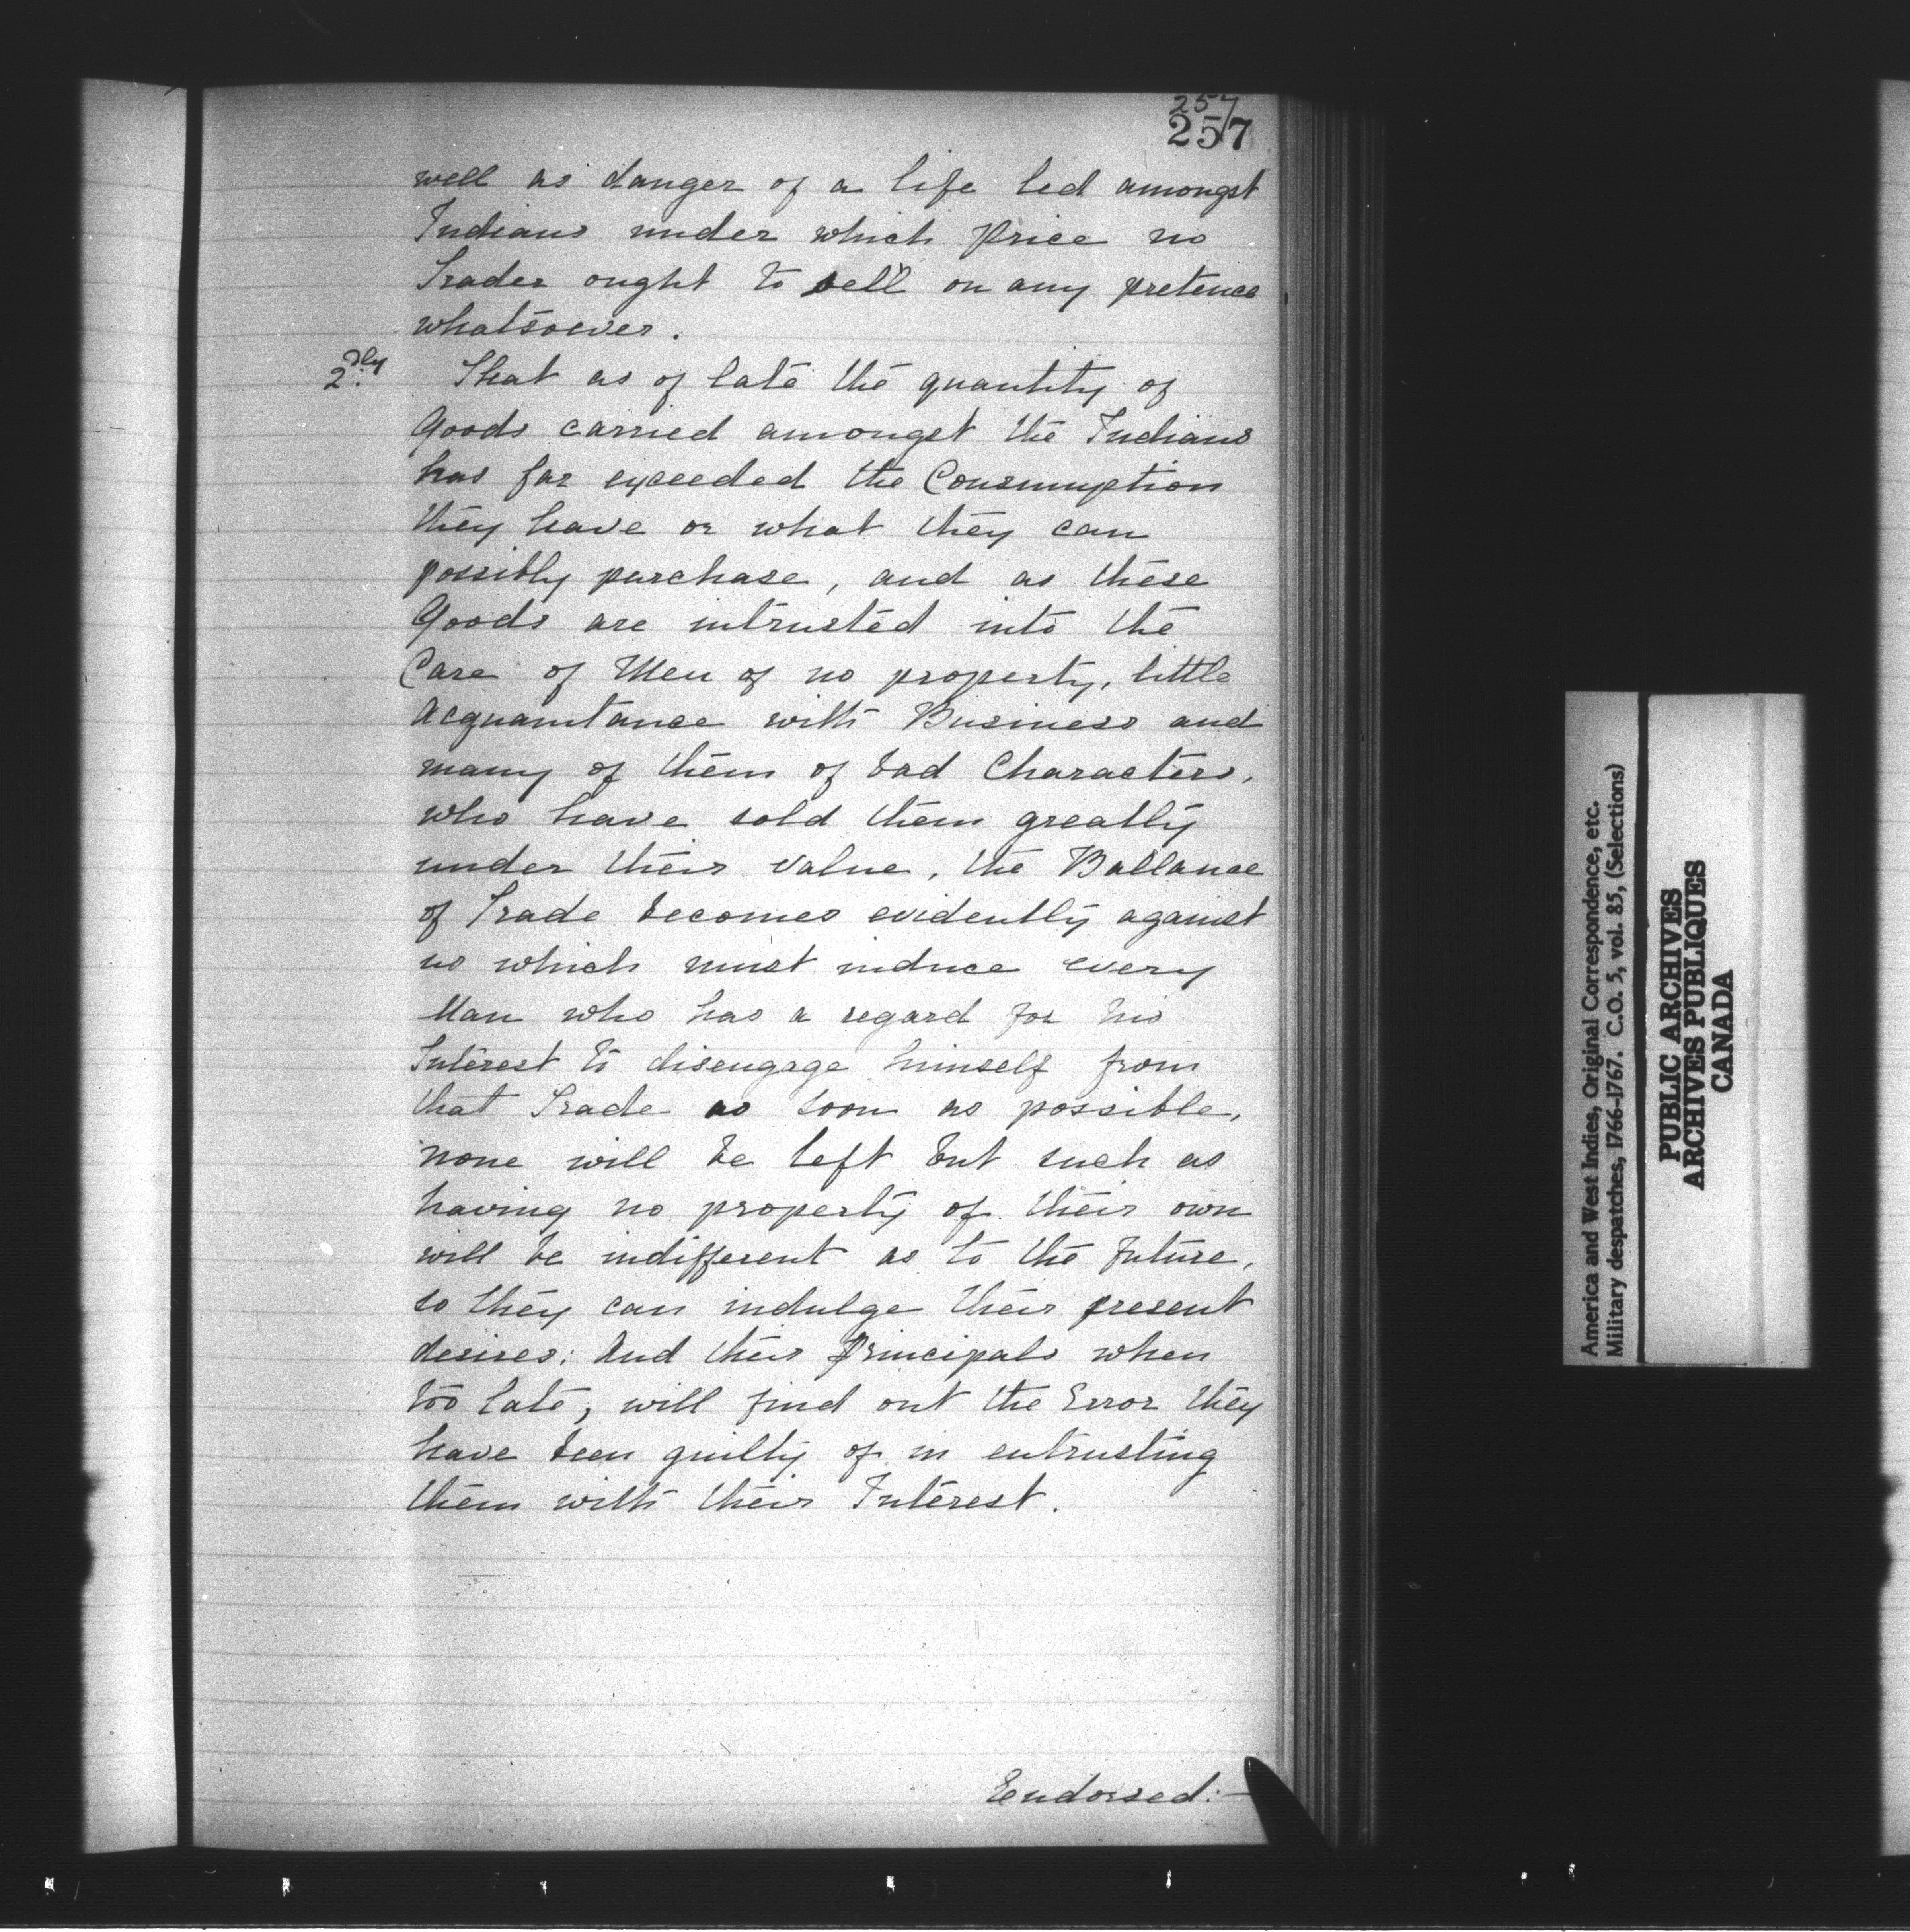 257
257
well as danger of a life led amongst
Indians under which price no
Trader ought to sell on any pretence
whatsoever.
2dly That as of late the quantity of
Goods carried amongst the Indians
has far exceeded the Consumption
they have or what they can
possibly purchase, and as these
Goods are intrusted into the
Care of Men of no property, little
Acquaintance with Business and
many of them of bad Characters,
who have sold them greatly
under their value, the Ballance
of Trade becomes evidently against
us which must induce every
Man who has a regard for his
Interest to disengage himself from
that Trade as soon as possible,
none will be left but such as
having no property of their own
will be indifferent as to the future,
so they can indulge their present
desires: And their Principals when
too late, will find out the Error they
have been guilty of in entrusting
them with their Interest.
Endorsed:—
America and West Indies, Original Correspondence, etc.
Military despatches, 1766-1767. C.O. 5, vol. 85, (Selections)
PUBLIC ARCHIVES
ARCHIVES PUBLIQUES
CANADA